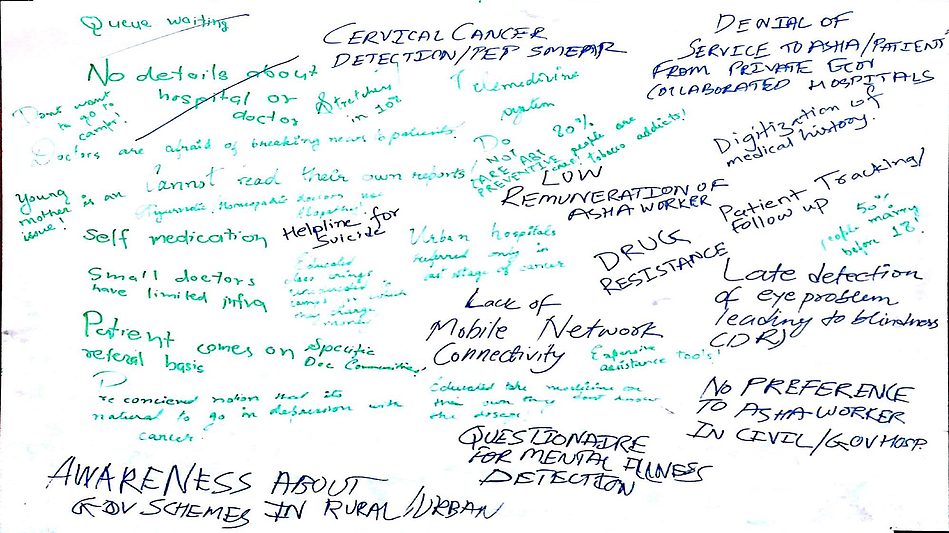 Queue waiting
CERVICAL CANCER
DETECTION/PEP SMEAR
DENIAL OF
SERVICE TO ASHA/PATIENT
FROM PRIVATE GOV
COLLABORATED HOSPITALS
No details about
hospital or
doctor
Stretcher
in 108
Telemedicine
system
Dont want
to go to
camps!
Doctors are afraid of breaking news to patients!
Do
NOT
CARE ABT
PREVENTIVE
20%
people are
tobacco addicts!
Digitization of
medical history.
Cannot read their own reports
Young
mother is an
issue!
Ayurvedic, Homeopathic doctors use
LOW
REMUNERATION OF
ASHA WORKER
Patient Tracking/
follow up
50%
people marry
before 18!
Self medication
Helpline for
Suicide
Urban hospitals
referred only in
last stage of cancer
DRUG
RESISTANCE
Small doctors
have limited infra
Educated
class
in which
charge
money
Lack of
Mobile Network
Connectivity
Late detection
of eye problem
leading to blindness
(DR)
Patient comes on
referal basis
Specific
Doc Communities,
Expensive
assistance tools!
Pre concieved notion that its
natural to go in depression with
cancer.
Educated take medicine on
their own they don't know
the disease!
NO PREFERENCE
TO ASHA WORKER
IN CIVIL/GOV HOSP.
QUESTIONAIRE
FOR MENTAL ILLNESS
DETECTION
AWARENESS ABOUT
GOV SCHEMES IN RURAL/URBAN